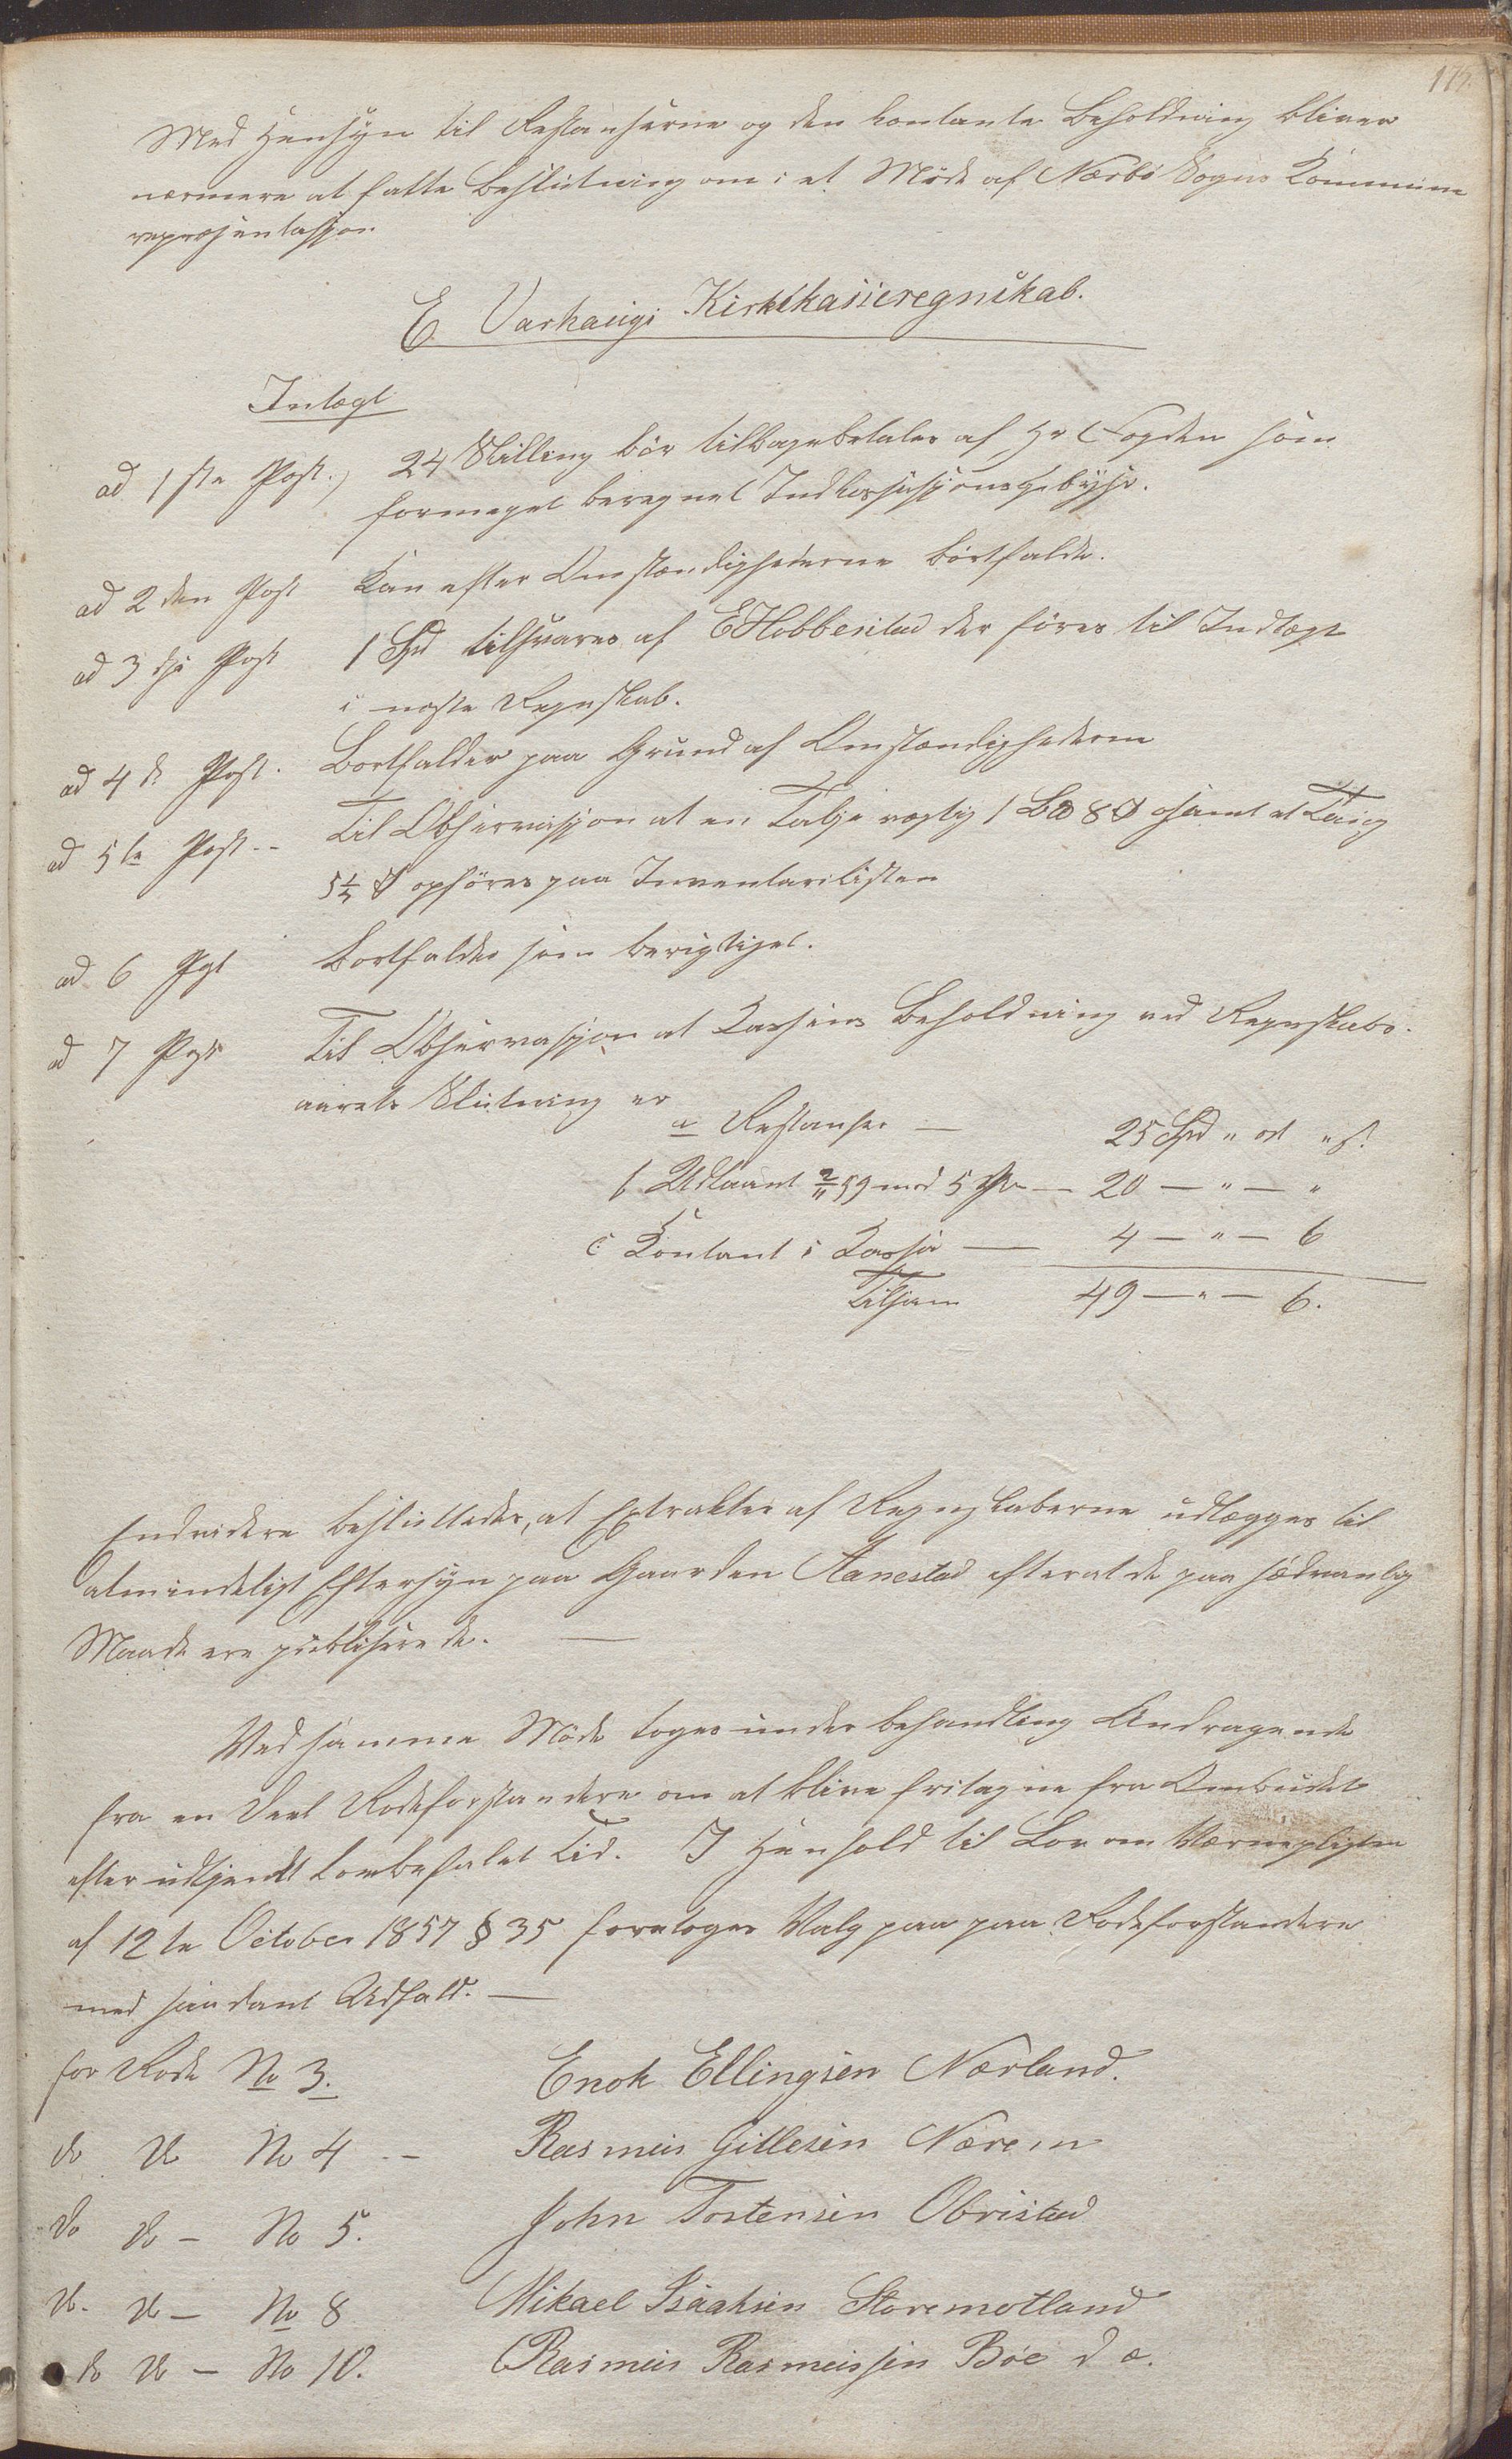 175.
Med Hensyn til Restanserne og den kontante Beholdning bliver
nærmere at fatte Beslutning om i et Møde af Nærbø Sogns Kommune
repræsentasjon
E Varhaugs Kirkekasseregnskab.
Intægt
ad 1ste Post.) 24 Skilling bör tilbagebetales af Hr Fogden som
formeget beregnet Indkassasjonsgebyhr.
ad 2den Post Kan efter Omstændighederne bortfalde.
ad 3dje Post 1 Spd tilsvares af E Hobberstad der föres til Indtægt
i næste Regnskab.
ad 4de Post. Bortfalder paa Grund af Omstændighederne
ad 5te Post -- Til Observasjon at en Talje vægtig 1 B℔ 8 ℔ samt et Toug
5½ ℔ opföres paa Inventarilisten
ad 6 Pgt Bortfalder som berigtiget.
ad 7 Pgt Til Observasjon at Kassens Beholdning ved Regnskabs-
aarets Slutning er
a Restanser — 25 Spd " ort " s.
b Udlaant 2/11 59 mod 5 pr — 20 — " — "
c: Kontant i Kassa — 4 — " — 6
Tilsam 49 — " — 6.
Endvidere besluttedes, at Extrakter af Regnskaberne udlægges til
almindeligt Eftersyn paa Gaarden Aanestad efterat de paa sædvanlig
Maade ere publiserede. —
Ved samme Möde toges under behandling Andragende
fra en Deel Rodeforstandere om at blive fritagne fra Ombudet
efter udtjendt lovbefalet Tid. I Henhold til Lov om Værnepligten
af 12te October 1857 § 35 foretoges Valg paa paa Rodeforstandere
med saadant Udfald. —
for Rode No 3. Enok Ellingsen Nærland.
do do No 4 -- Rasmus Gitlesen Nærem
do do — No 5. John Tostensen Obrestad
do. do — No 8 Mikael Isaaksen Storemotland
do do — No 10. Rasmus Rasmussen Böe d æ.